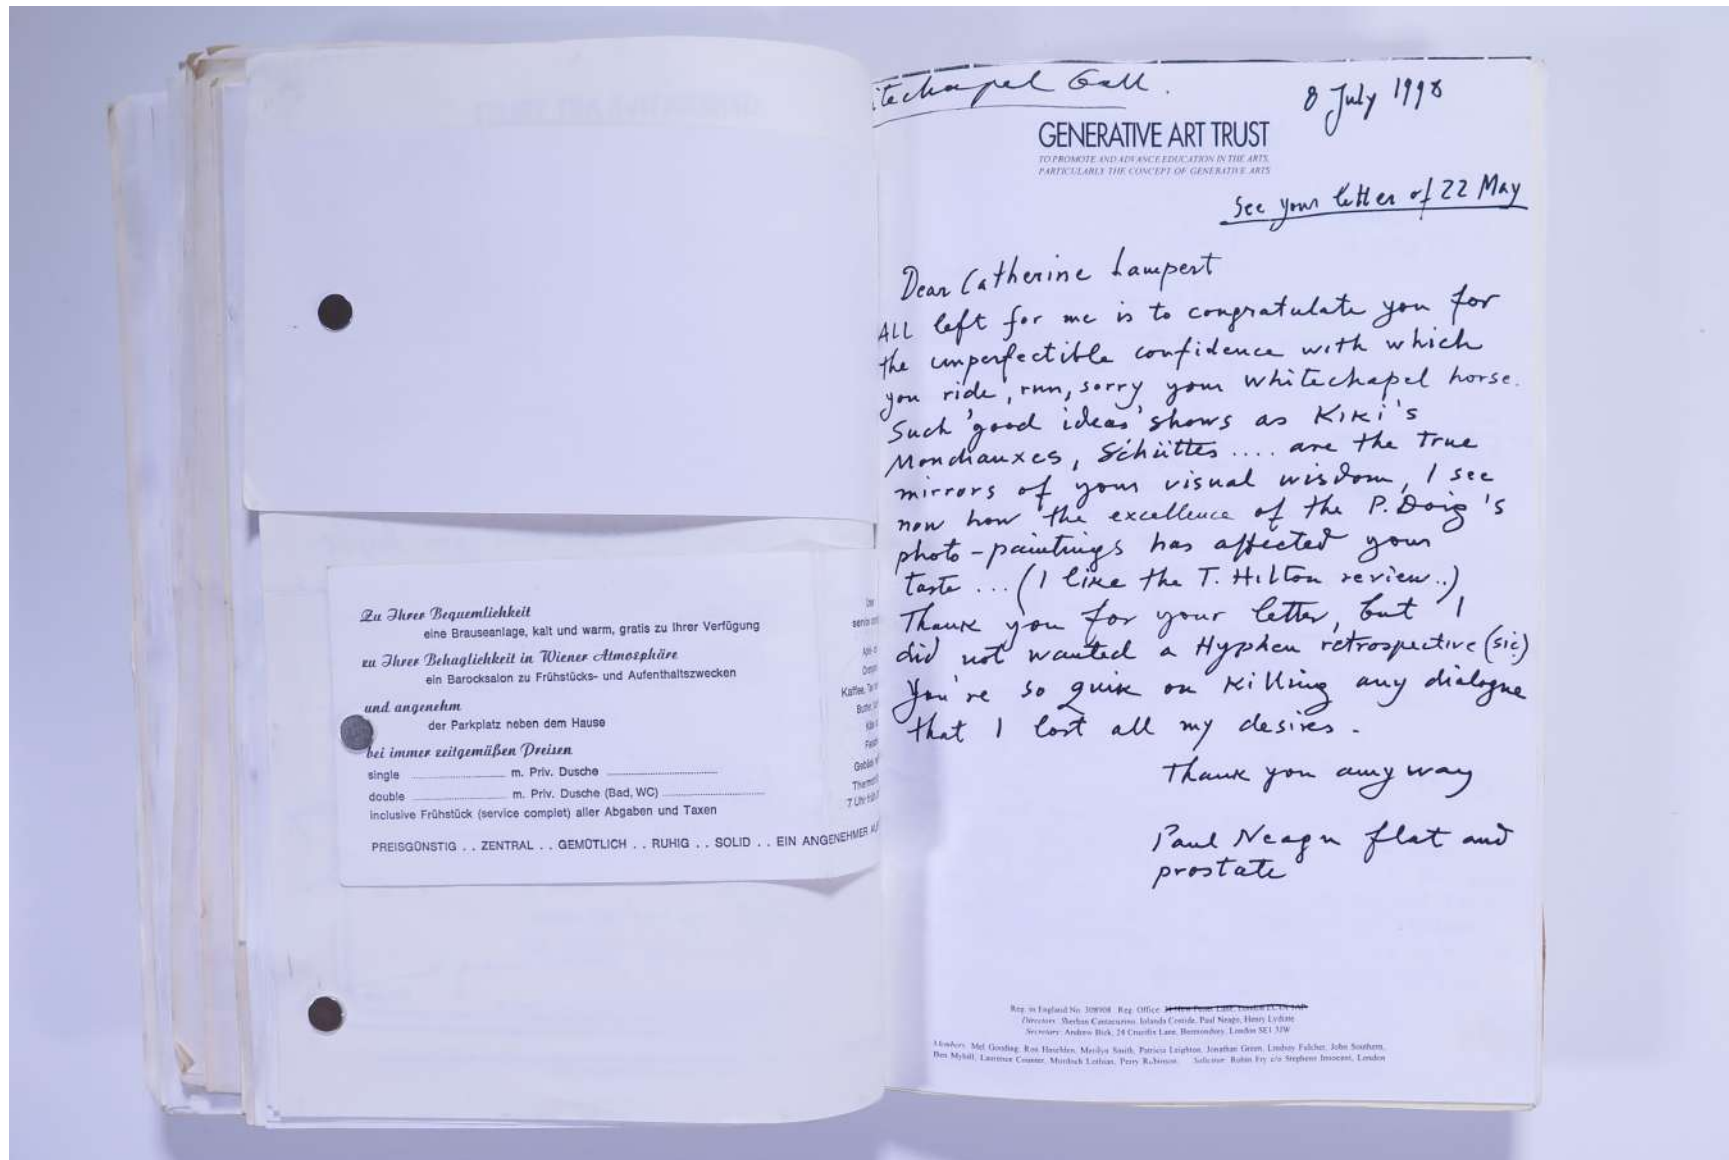 Zu Ihrer Bequemlichkeit
eine Brauseanlage, kalt und warm, gratis zu Ihrer Verfügung
zu Ihrer Behaglichkeit in Wiener Atmosphäre
ein Barocksalon zu Frühstücks- und Aufenthaltszwecken
und angenehm
der Parkplatz neben dem Hause
bei immer zeitgemäßen Preisen
single m. Priv. Dusche
double m. Priv. Dusche (Bad, WC)
inclusive Frühstück (service complet) aller Abgaben und Taxen
PREISGÜNSTIG . . ZENTRAL . . GEMÜTLICH . . RUHIG . . SOLID . . EIN ANGENEHMER
Kaffee,
7 Uhr
itechapel Gall.
8 July 1998
GENERATIVE ART TRUST
TO PROMOTE AND ADVANCE EDUCATION IN THE ARTS,
PARTICULARLY THE CONCEPT OF GENERATIVE ARTS
See your letter of 22 May
Dear Catherine Lampert
ALL left for me is to congratulate you for
the unperfectible confidence with which
you ride, run, sorry your Whitechapel horse.
Such 'good ideas' shows as Kiki's
Mondiauxes, Schüttes .... are the true
mirrors of your visual wisdom, I see
now how the excellence of the P. Doig's
photo-paintings has affected your
taste ... (I like the T. Hilton review..)
Thank you for your letter, but I
did not wanted a Hyphen retrospective (sic)
You're so quik on killing any dialogue
that I lost all my desires.
Thank you any way
Paul Neagu flat and
prostate
Reg. in England No. Reg. Office:
Directors: Sherban Cantacuzino, Iolanda Costide, Paul Neagu, Henry Lydiate
Secretary: Andrew Bick, 24 Crucifix Lane, Bermondsey, London SE1 3JW
Members: Mel Gooding, Ron Haselden, Marilyn Smith, Patricia Leighton, Jonathan Green, Lindsay Fulcher, John Southern,
Ben Myhill, Laurence Counter, Murdoch Lothian, Perry Robinson. Solicitor: Robin Fry c/o Stephens Innocent, London